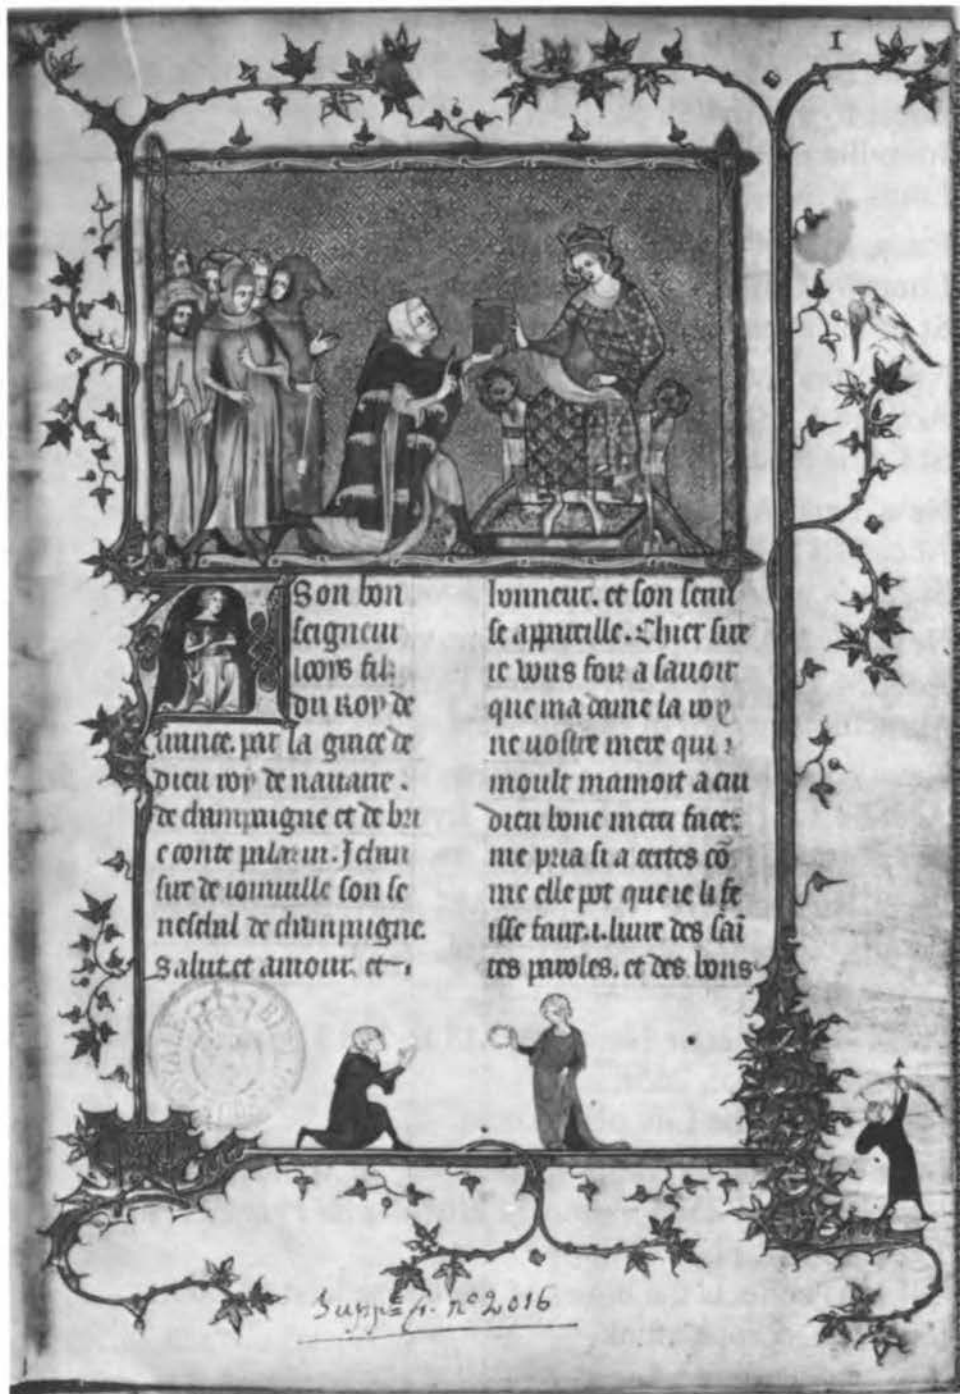 I
A Son bon
seigneur
looys filz
du Roy de
france. par la grace de
dieu roy de nauarre.
de champaigne et de bri
e conte palazin. Jehan
sire de ioinuille son se
neschal de champaigne
salut. et amour. et
honneur. et son seruise
se appareille. Chier sire
ie vous foiz a sauoir
que ma dame la roy
ne vostre mere qui
moult mamoit a cui
dieu bone merci face:
me pria si a certes cō
me elle pot que ie li fe
isse faire .i. liure des sai
tes paroles. et des bons
Supp. fr. nº 2016